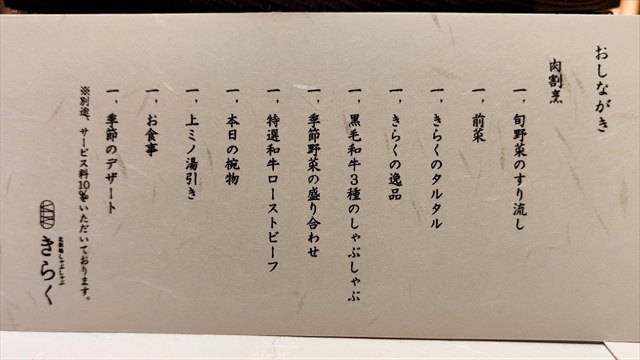 おしながき
肉割烹
一,旬野菜のすり流し
一,前菜
一,きらくのタルタル
一,きらくの逸品
一,黒毛和牛3種のしゃぶしゃぶ
一,季節野菜の盛り合わせ
一,特選和牛ローストビーフ
一,本日の椀物
一,上ミノ湯引き
一,お食事
一,季節のデザート
※別途、サービス料10%いただいております。
きらく